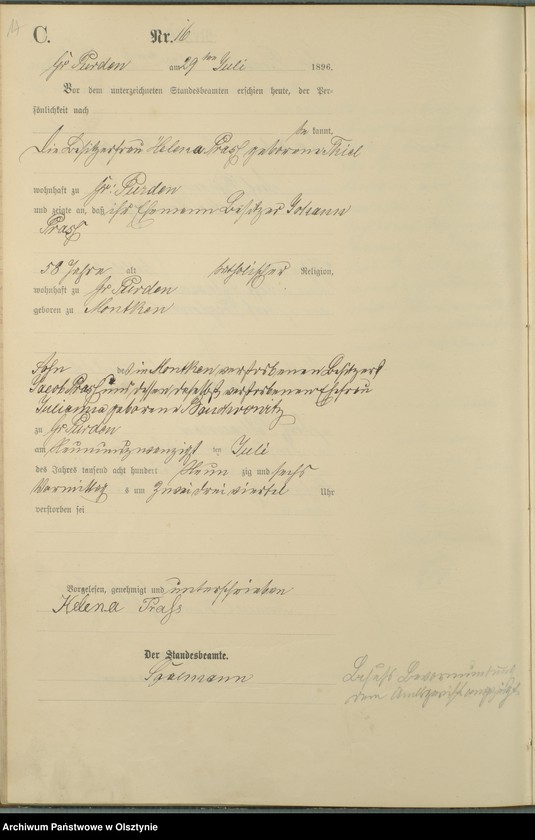 C. Nr. 16
Gr Purden am 29ten Juli 1896.
Vor dem unterzeichneten Standesbeamten erschien heute, der Per-
sönlichkeit nach
be kannt,
die Besitzerfrau Helena Prass geborene Thiel
wohnhaft zu Gr. Purden
und zeigte an, daß ihr Ehemann Besitzer Johann
Prass
58 Jahre alt katholischer Religion,
wohnhaft zu Gr Purden
geboren zu Montken
Sohn des in Montken verstorbenen Besitzers
Jacob Prass und dessen daselbst verstorbenen Ehefrau
Julianna geborene
zu Gr Purden
am Neunundzwanzigsten Juli
des Jahres tausend acht hundert Neun zig und sechs
Vormittag s um Zwei drei viertel Uhr
verstorben sei
Vorgelesen, genehmigt und unterschrieben
Helena Prass
Der Standesbeamte.
Behufs Bevormundung
dem Amtsgericht angezeigt.
Archiwum Państwowe w Olsztynie